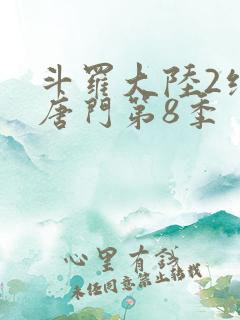 斗羅大陸2絕
唐門第8季
心里有譜
未经同意禁止转载